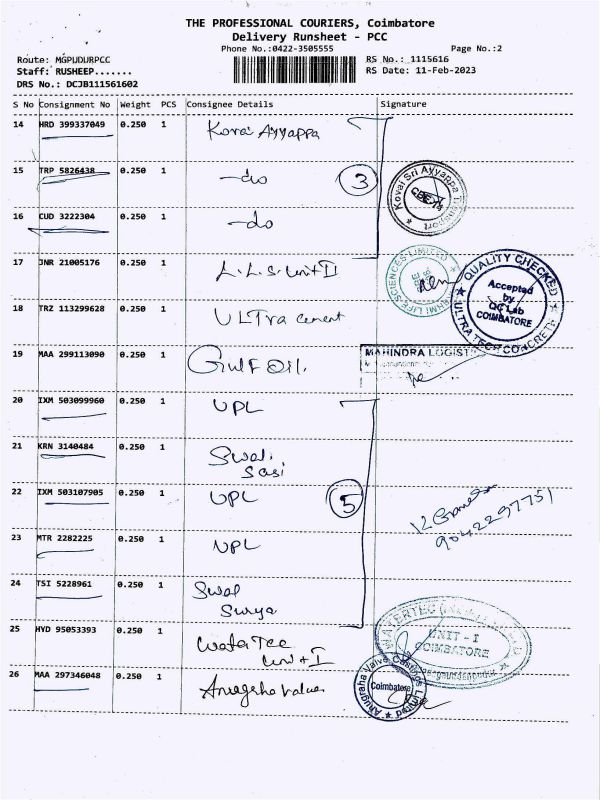 THE PROFESSIONAL COURIERS, Coimbatore
Delivery Runsheet - PCC
Phone No.:0422-3505555 Page No.:2
Route: MGPUDURPCC RS No.: 1115616
Staff: RUSHEEP....... RS Date: 11-Feb-2023
DRS No.: DCJB111561602
S No Consignment No Weight PCS Consignee Details Signature
14 HRD 399337049 0.250 1 Kovai Ayyappa
15 TRP 5826438 0.250 1 -do 3
Kovai Sri Ayyappa Transport
CBE-18
16 CUD 3222304 0.250 1 -do
17 JNR 21005176 0.250 1 A.L.S. Unit II
LIFE SCIENCES LIMITED
QUALITY CHECKED
Accepted
by
QC Lab
COIMBATORE
ULTRATECH CONCRETE
18 TRZ 113299628 0.250 1 ULTra cement
19 MAA 299113090 0.250 1 Gulf Oil.
MAHINDRA LOGIST
20 IXM 503099960 0.250 1 UPL
21 KRN 3140484 0.250 1 Swati
Sasi
22 IXM 503107905 0.250 1 UPL 5
9042297751
23 MTR 2282225 0.250 1 UPL
24 TSI 5228961 0.250 1 Swap
Surya
25 HYD 95053393 0.250 1 WaterTec
Unit I
WATERTEC
UNIT - I
COIMBATORE
26 MAA 297346048 0.250 1 Anugraha Valves
Anugraha Valve Castings Limited
Coimbatore